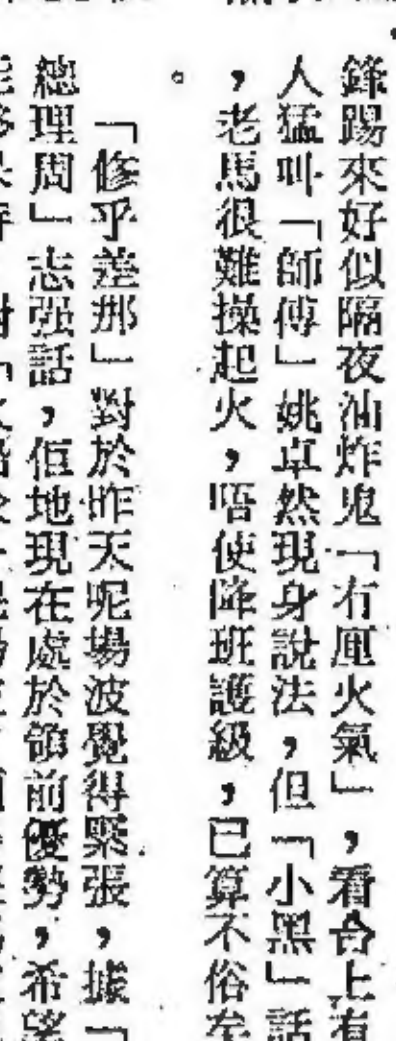 鋒踢來好似隔夜油炸鬼「冇厘火氣」，看台上有
人猛叫「師傅」姚卓然現身說法，但「小黑」話
，老馬很難操起火，唔使降班護級，已算不俗矣
。
「修乎差那」對於昨天呢場波覺得緊張，據「
總理周」志强話，佢地現在處於領前優勢，希望